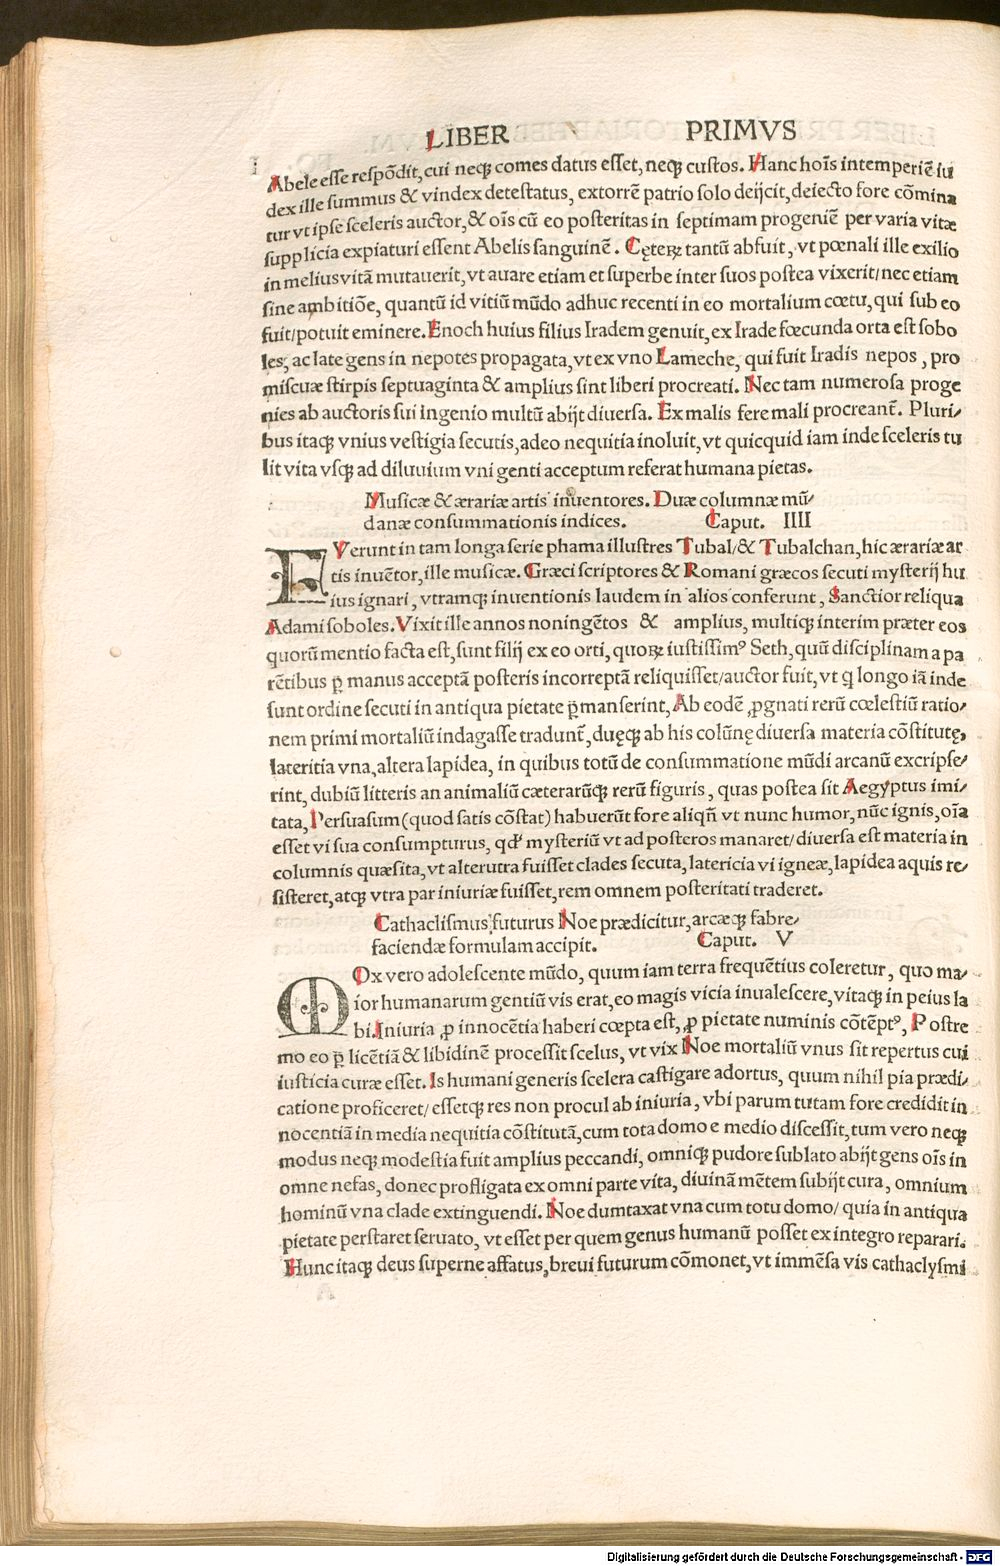 LIBER PRIMVS
Abele esse respõdit, cui neqꝫ comes datus esset, neqꝫ custos. Hanc hoĩs intemperiẽ iu
dex ille summus & vindex detestatus, extorrẽ patrio solo deijcit, deiecto fore cõmina
tur vt ipse sceleris auctor, & oĩs cũ eo posteritas in septimam progeniẽ per varia vitæ
supplicia expiaturi essent Abelis sanguinẽ. Cęterꝝ tantũ abfuit, vt pœnali ille exilio
in melius vitã mutauerit, vt auare etiam et superbe inter suos postea vixerit/ nec etiam
sine ambitiõe, quantũ id vitiũ mũdo adhuc recenti in eo mortalium cœtu, qui sub eo
fuit/ potuit eminere. Enoch huius filius Iradem genuit, ex Irade fœcunda orta est sobo
les, ac late gens in nepotes propagata, vt ex vno Lameche, qui fuit Iradis nepos, pro
miscuæ stirpis septuaginta & amplius sint liberi procreati. Nec tam numerosa proge
nies ab auctoris sui ingenio multũ abijt diuersa. Ex malis fere mali procreant̃. Pluri/
bus itaqꝫ vnius vestigia secutis, adeo nequitia inoluit, vt quicquid iam inde sceleris tu
lit vita vsqꝫ ad diluuium vni genti acceptum referat humana pietas.
Musicæ & ærariæ artis inuentores. Duæ columnæ mũ/
danæ consummationis indices. Caput. IIII
FVerunt in tam longa serie phama illustres Tubal/ & Tubalchan, hic ærariæ ar
tis inuẽtor, ille musicæ. Græci scriptores & Romani græcos secuti mysterij hu
ius ignari, vtramqꝫ inuentionis laudem in alios conferunt, Sanctior reliqua
Adami soboles. Vixit ille annos noningẽtos & amplius, multiqꝫ interim præter eos
quorũ mentio facta est, sunt filij ex eo orti, quoꝝ iustissimꝰ Seth, quũ disciplinam a pa
rẽtibus p̱ manus acceptã posteris incorreptã reliquisset/ auctor fuit, vt q̱ longo iã inde
sunt ordine secuti in antiqua pietate p̱manserint, Ab eodẽ ꝓgnati rerũ cœlestiũ ratio/
nem primi mortaliũ indagasse tradunt̃, duęqꝫ ab his colũnę diuersa materia cõstitutę,
lateritia vna, altera lapidea, in quibus totũ de consummatione mũdi arcanũ excripse/
rint, dubiũ litteris an animaliũ cæterarũqꝫ rerũ figuris, quas postea sit Aegyptus imi/
tata, Persuasum (quod satis cõstat) habuerũt fore aliqñ vt nunc humor, nũc ignis, oĩa
esset vi sua consumpturus, qđ mysteriũ vt ad posteros manaret/ diuersa est materia in
columnis quæsita, vt alterutra fuisset clades secuta, latericia vi igneæ, lapidea aquis re/
sisteret, atqꝫ vtra par iniuriæ fuisset, rem omnem posteritati traderet.
Cathaclismus futurus Noe prædicitur, arcæqꝫ fabre/
faciendæ formulam accipit. Caput. V
MOx vero adolescente mũdo, quum iam terra frequẽtius coleretur, quo ma/
ior humanarum gentiũ vis erat, eo magis vicia inualescere, vitaqꝫ in peius la
bi. Iniuria ꝓ innocẽtia haberi cœpta est, ꝓ pietate numinis cõtẽptꝰ, Postre
mo eo p̱ licẽtiã & libidinẽ processit scelus, vt vix Noe mortaliũ vnus sit repertus cui
iusticia curæ esset. Is humani generis scelera castigare adortus, quum nihil pia prædi/
catione proficeret/ essetqꝫ res non procul ab iniuria, vbi parum tutam fore credidit in
nocentiã in media nequitia cõstitutã, cum tota domo e medio discessit, tum vero neqꝫ
modus neqꝫ modestia fuit amplius peccandi, omniqꝫ pudore sublato abijt gens oĩs in
omne nefas, donec profligata ex omni parte vita, diuinã mẽtem subijt cura, omnium
hominũ vna clade extinguendi. Noe dumtaxat vna cum totu domo/ quia in antiqua
pietate perstaret seruato, vt esset per quem genus humanũ posset ex integro reparari.
Hunc itaqꝫ deus superne affatus, breui futurum cõmonet, vt immẽsa vis cathaclysmi
Digitalisierung gefördert durch die Deutsche Forschungsgemeinschaft - DFG